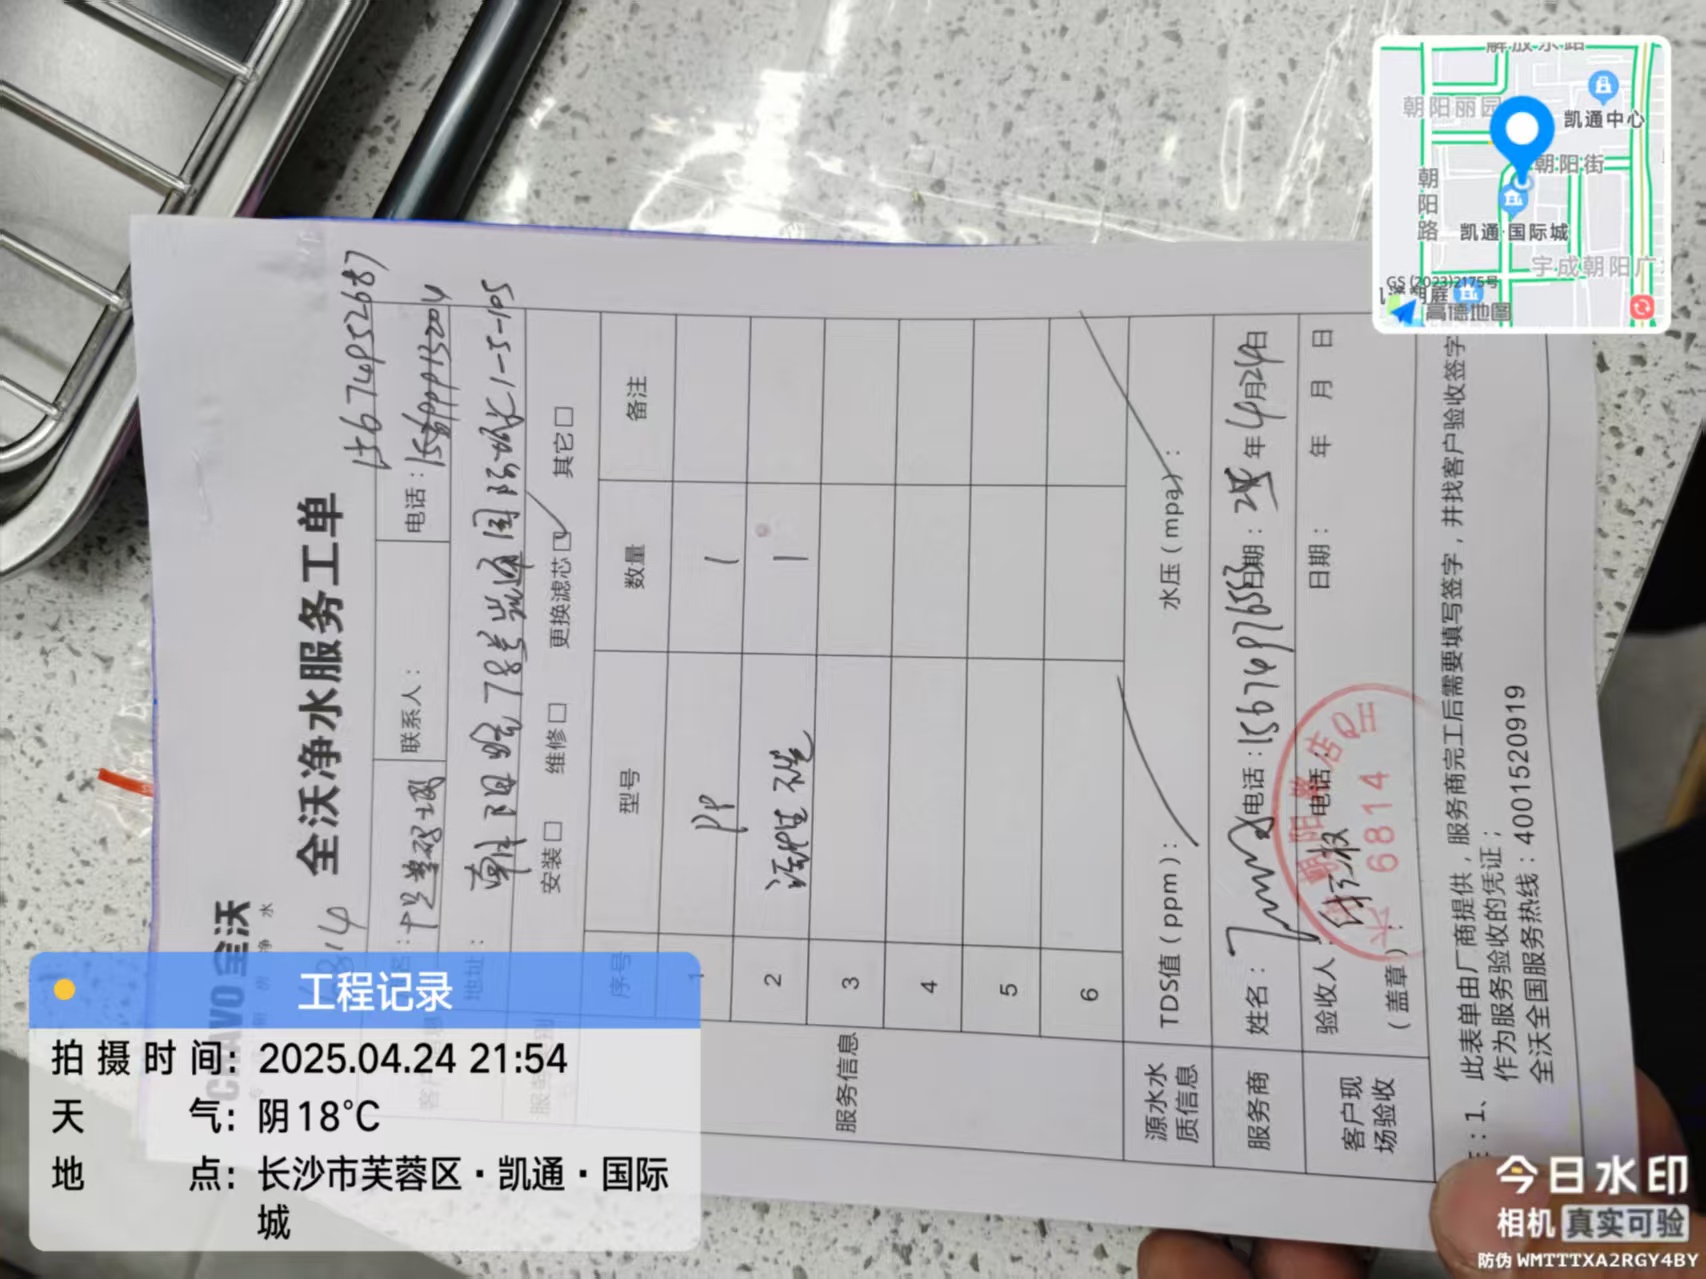 CHAVO 全沃
净水
全沃净水服务工单
15674952687
联系人：
电话：
地址：朝阳路78号凯通国际城1-5-105
安装□ 维修□ 更换滤芯☑ 其它□
序号 型号 数量 备注
1 PP 1
2 活性 1
3
4
5
6
服务信息
源水水质信息 TDS值（ppm）： 水压（mpa）：
服务商 姓名： 电话：15674976553 日期：25年4月24日
客户现场验收 验收人： 电话： 日期： 年 月 日
（盖章）：
朝阳 店QH
6814
1、此表单由厂商提供，服务商完工后需要填写签字，并找客户验收签字
作为服务验收的凭证；
全沃全国服务热线：4001520919
工程记录
拍摄时间：2025.04.24 21:54
天气：阴18℃
地点：长沙市芙蓉区·凯通·国际
城
解放东路
朝阳丽园
凯通中心
朝阳街
朝阳路
凯通·国际城
宇成朝阳广
GS (2023)2175号
高德地图
今日水印
相机 真实可验
防伪 WMTTTXA2RGY4BY